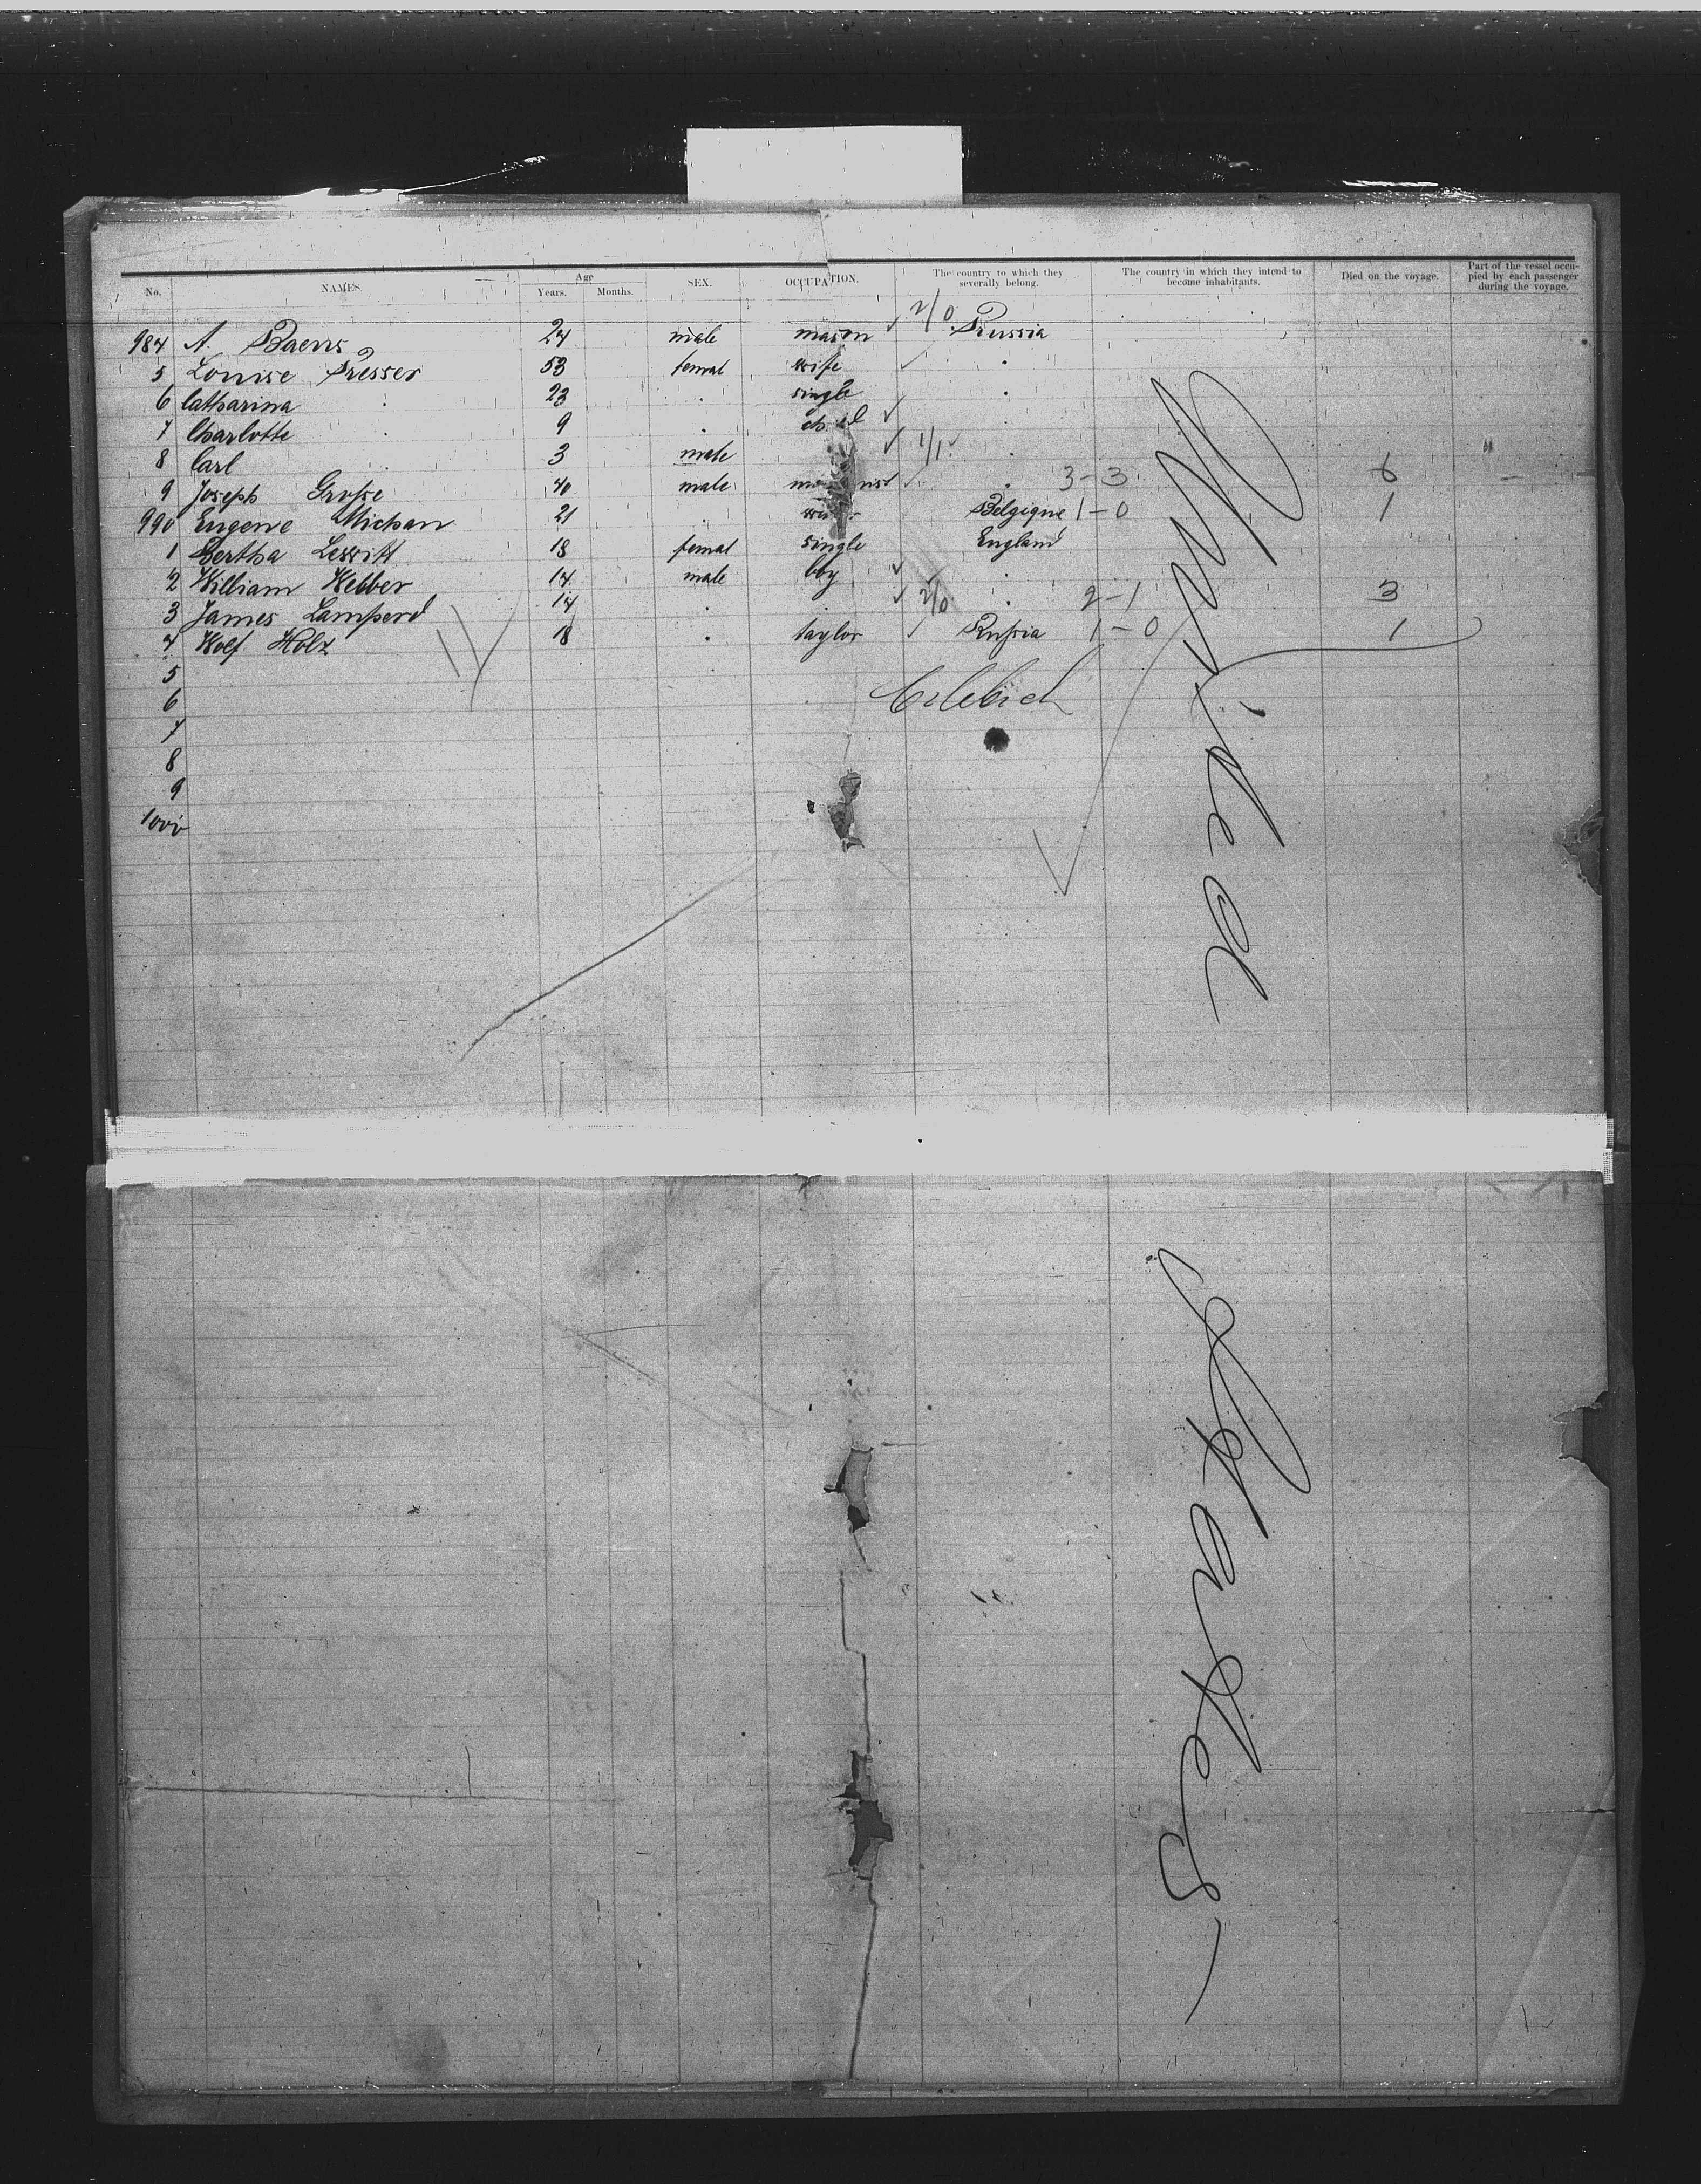 No. NAMES. Age Years. Months. SEX. OCCUPATION. The country to which they severally belong. The country in which they intend to become inhabitants. Died on the voyage. Part of the vessel occupied by each passenger during the voyage.
984 A. Baens 24 male mason 2/0 Prussia
5 Louise Presser 53 femal wife
6 Catharina 23 single
7 Charlotte 9
8 Carl 3 male 1/1
9 Joseph Grosse 40 male 3-3 6
990 Eugene Michan 21 Belgique 1-0 1
1 Bertha 18 femal single England
2 William Webber 14 male boy
3 James Lamperd 14 2/0 2-1 3
4 Wolf Holz 18 taylor Russia 1-0 1
5
6
7
8
9
1000
United States